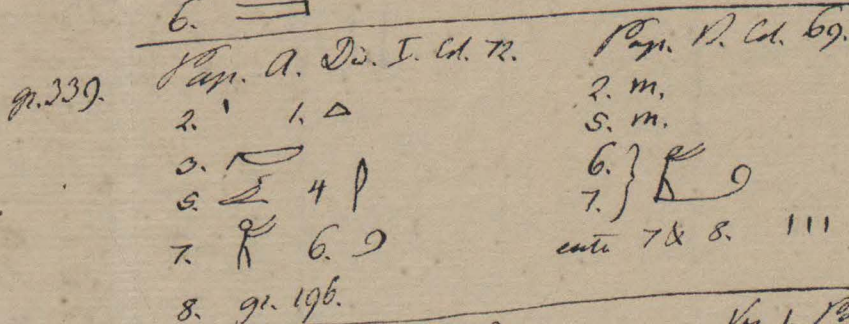 6.
gr. 339. Pap. A. Div. I. Col. 72.
2. 1. △
3.
5. 4
7. 6.
8. gr. 196.
Pap. D. Col. 69.
2. m.
5. m.
6.
7.
ante 7 & 8. | | |